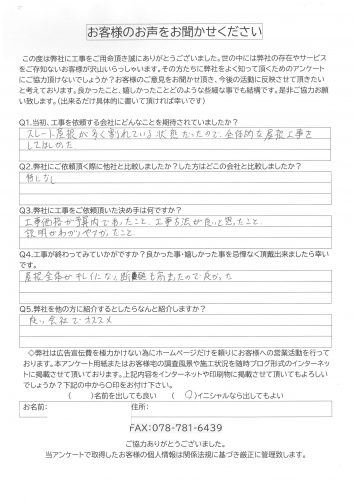 お客様のお声をお聞かせください
この度は弊社に工事をご用命頂き誠にありがとうございました。世の中には弊社の存在やサービス
をご存知ないお客様が沢山いらっしゃいます。その方たちに弊社をよく知って頂くためのアンケート
にご協力頂けないでしょうか?お客様のご意見をお聞かせ頂き、今後の活動に反映させて頂きたい
と考えております。良かったこと、嬉しかったことどのような些細な事でも結構です。是非ご協力お願
い致します。(出来るだけ具体的に書いて頂ければ幸いです)
Q1.当初、工事を依頼する会社にどんなことを期待されていましたか?
スレート屋根が多く割れている状態だったので、全体的な屋根工事を
してほしかった
Q2.弊社にご依頼頂く際に他社と比較しましたか?した方はどこの会社と比較しましたか?
特になし
Q3.弊社に工事をご依頼頂いた決め手は何ですか?
工事価格が予算内であったこと、工事方法が良いと思ったこと、
説明がわかりやすかったこと
Q4.工事が終わってみていかがですか?良かった事・嬉しかった事を忌憚なく頂戴出来ましたら幸
いです。
屋根全体がキレイになり、断熱も高まったので良かった
Q5.弊社を他の方に紹介するとしたらなんと紹介しますか?
良い会社で・オススメ
◇弊社は広告宣伝費を極力かけない為にホームページだけを頼りにお客様への営業活動を行って
おります。本アンケート用紙またはお客様宅の調査風景や施工状況を随時ブログ形式のインターネッ
トに掲載させて頂いております。上記内容をインターネットや印刷物に掲載させて頂いてもよろしい
でしょうか? 下記の中から○印をお付け下さい。
( )名前を出しても良い (○)イニシャルなら出してもよい
お名前: 住所:
FAX:078-781-6439
ご協力ありがとうございました。
当アンケートで取得したお客様の個人情報は関係法規に基づき厳正に管理致します。